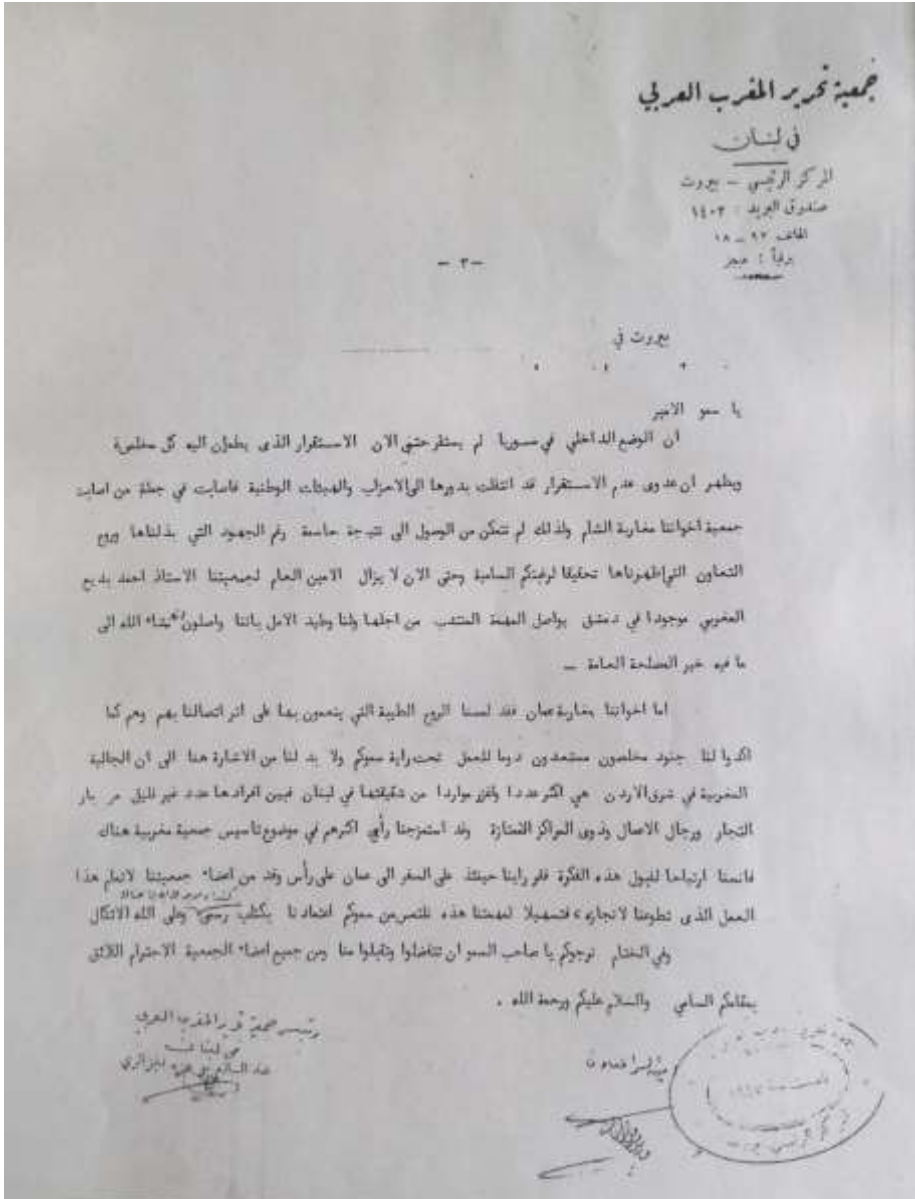 جمعية تحرير المغرب العربي
في لبنان
المركز الرئيسي – بيروت
صندوق البريد : ١٤٠٣
الهاتف ٩٧ – ١٨
برقياً :
– ٣ –
بيروت في
يا سمو الامير
ان الوضع الداخلي في سوريا لم يستقر حتى الان الاستقرار الذى يطمئن اليه كل مخلص
ويظهر ان عدوى عدم الاستقرار قد انتقلت بدورها الى الاحزاب والهيئات الوطنية فاصابت في جملة من اصابت
جمعية اخواننا مغاربة الشام ولذلك لم نتمكن من الوصول الى نتيجة حاسمة رغم الجهود التي بذلناها وروح
التعاون التي اظهرناها تحقيقا لرغبتكم السامية وحتى الان لا يزال الامين العام لجمعيتنا الاستاذ احمد بديع
المغربي موجودا في دمشق يواصل المهمة المنتدب من اجلها ولنا وطيد الامل باننا واصلون انشاء الله الى
ما فيه خير المصلحة العامة –
اما اخواننا مغاربة عمان فقد لمسنا الروح الطيبة التي ينعمون بها على اثر اتصالنا بهم وهم كما
اكدوا لنا جنود مخلصون مستعدون دوما للعمل تحت راية سموكم ولا بد لنا من الاشارة هنا الى ان الجالية
المغربية في شرق الاردن هي اكثر عددا واغزر مواردا من شقيقتها في لبنان فبين افرادها عدد غير قليل من بار
التجار ورجال الاعمال وذوى المراكز الممتازة وقد استمزجنا رأي اكثرهم في موضوع تاسيس جمعية مغربية هناك
فانسنا ارتياحا لقبول هذه الفكرة فقر راينا حينئذ على السفر الى عمان على رأس وفد من اعضاء جمعيتنا لاتمام هذا
العمل الذى تطوعنا لانجازه فتسهيلا لمهمتنا هذه نلتمس من سموكم اعتمادنا بكتاب رسمي وعلى الله الاتكال
وفي الختام نرجوكم يا صاحب السمو ان تتفضلوا وتقبلوا منا ومن جميع اعضاء الجمعية الاحترام اللائق
بمقامكم السامي والسلام عليكم ورحمة الله .
رئيس جمعية تحرير المغرب العربي
في لبنان
الجزائري
امين السر العام